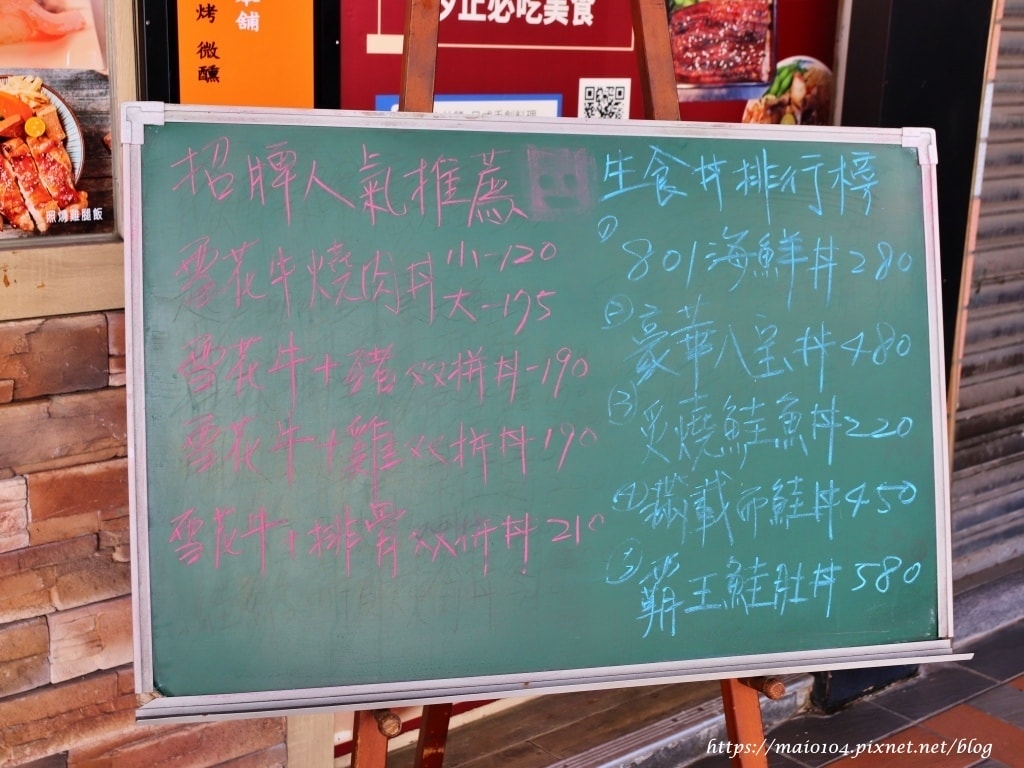 烤 微醺
本舖
必吃美食
照燒雞腿飯
招牌人氣推薦
雪花牛燒肉丼 小-120
大-195
雪花牛+豬双拼丼-190
雪花牛+雞双拼丼190
雪花牛+排骨双拼丼210
生食丼排行榜
① 801海鮮丼280
② 豪華八宝丼480
③ 炙燒鮭魚丼220
④ 滿載而鮭丼450
⑤ 霸王鮭肚丼580
https://maio104.pixnet.net/blog